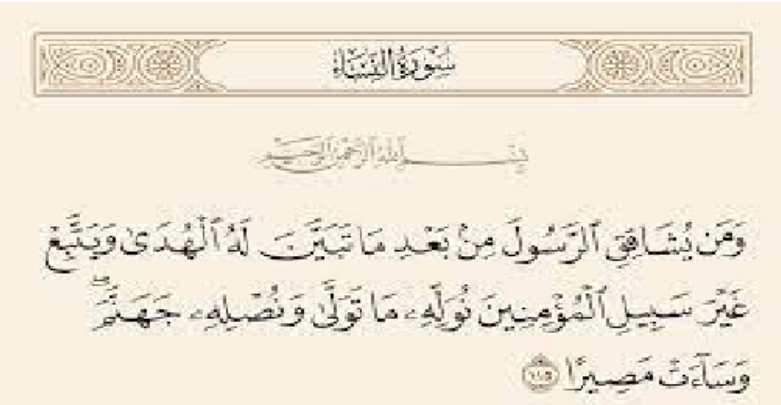 سُورَةُ النِّسَاءِ
بِسْمِ ٱللَّهِ ٱلرَّحْمَٰنِ ٱلرَّحِيمِ
وَمَن يُشَاقِقِ ٱلرَّسُولَ مِنۢ بَعْدِ مَا تَبَيَّنَ لَهُ ٱلْهُدَىٰ وَيَتَّبِعْ
غَيْرَ سَبِيلِ ٱلْمُؤْمِنِينَ نُوَلِّهِۦ مَا تَوَلَّىٰ وَنُصْلِهِۦ جَهَنَّمَۖ
وَسَآءَتْ مَصِيرًا ١١٥